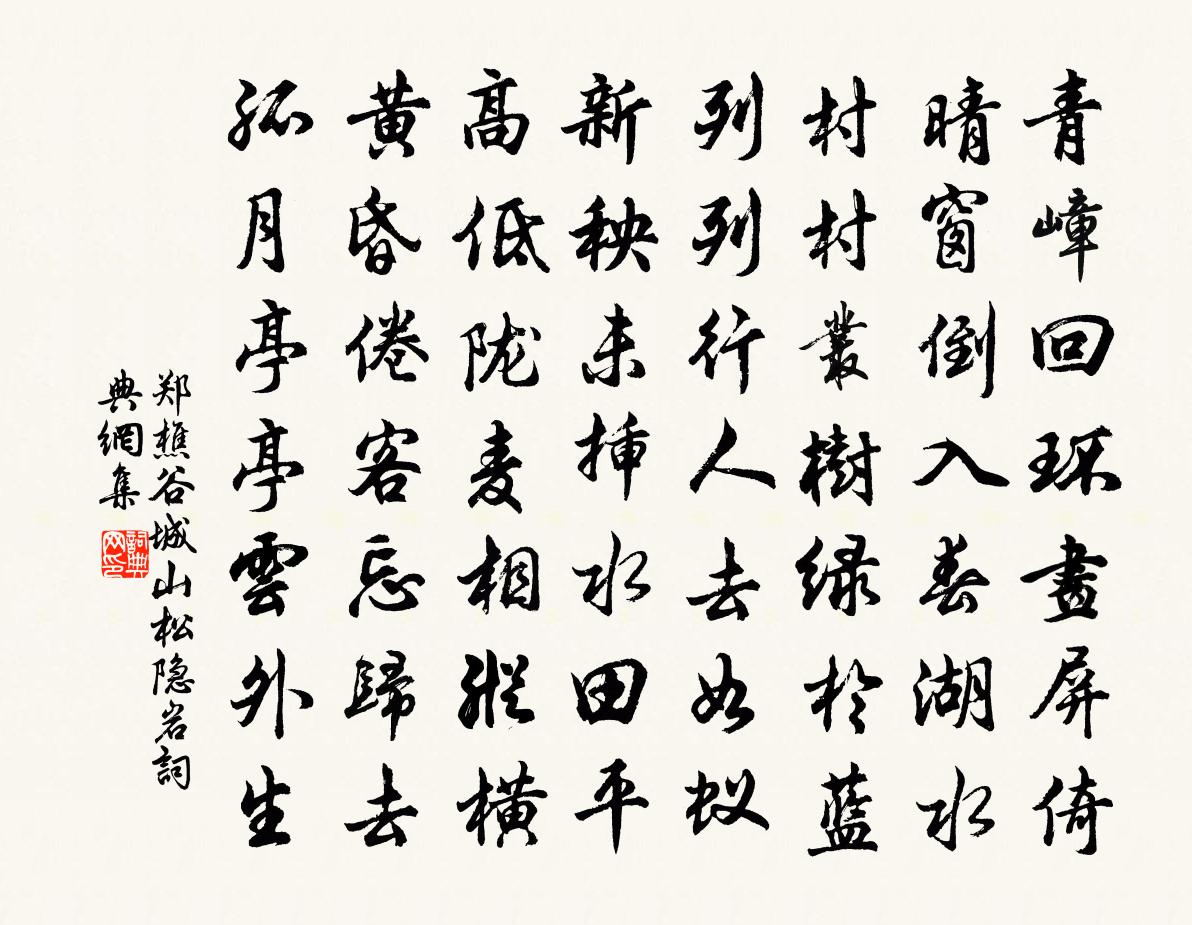 青嶂回环畫屏倚
晴窗倒入春湖水
村村叢樹绿於藍
列列行人去如蚁
新秧未插水田平
高低陇麦相縱横
黄昏倦客忘歸去
孤月亭亭雲外生
郑樵谷城山松隐岩詞
典網集
詞典
网印